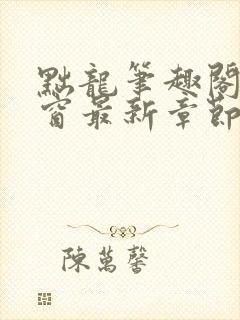 點龍筆趣閣
窗最新章節
陳萬馨